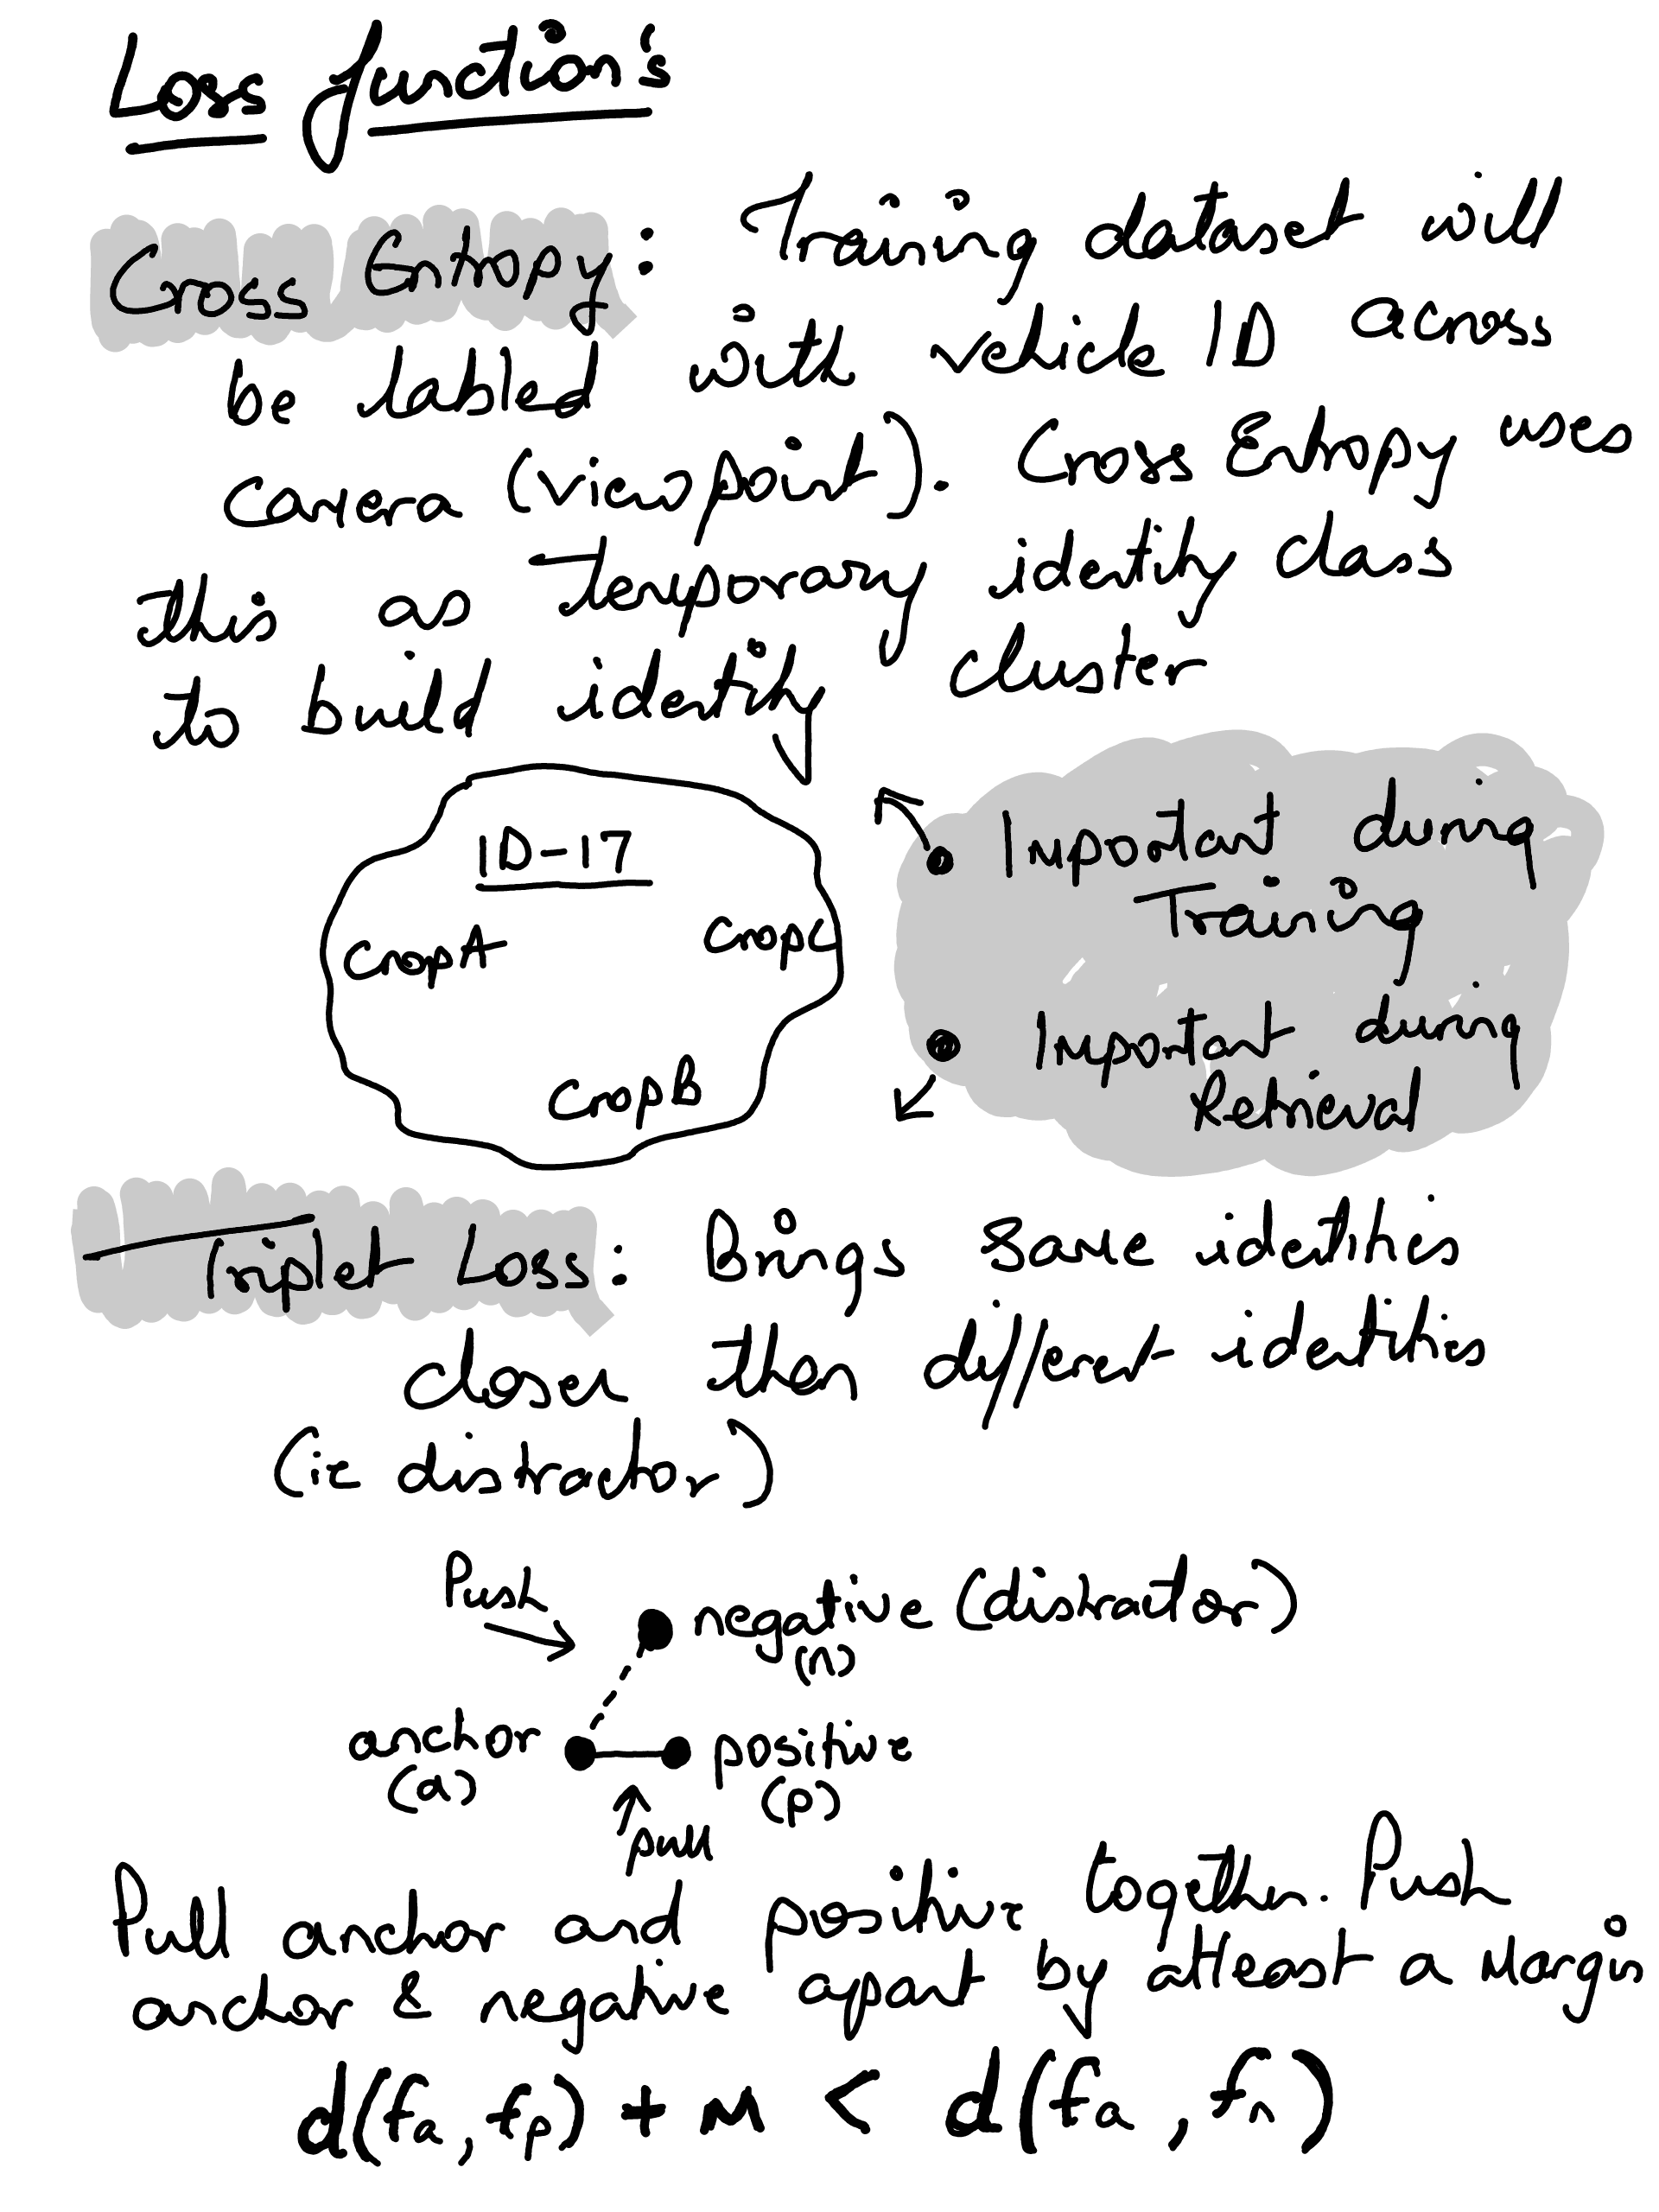 Loss function's
Cross Entropy: Training dataset will
be labled with vehicle ID across
camera (viewpoint). Cross Entropy uses
this as temporary identity class
to build identity cluster
ID-17
CropA
CropC
CropB
• Important during
Training
• Important during
Retrieval
Triplet Loss: Brings same identities
closer then different identities
(ie distractor)
Push
negative (distractor)
(n)
anchor
(a)
positive
(p)
pull
Pull anchor and positive together. Push
anchor & negative apart by atleast a Margin
d(fa, fp) + M < d(fa, fn)